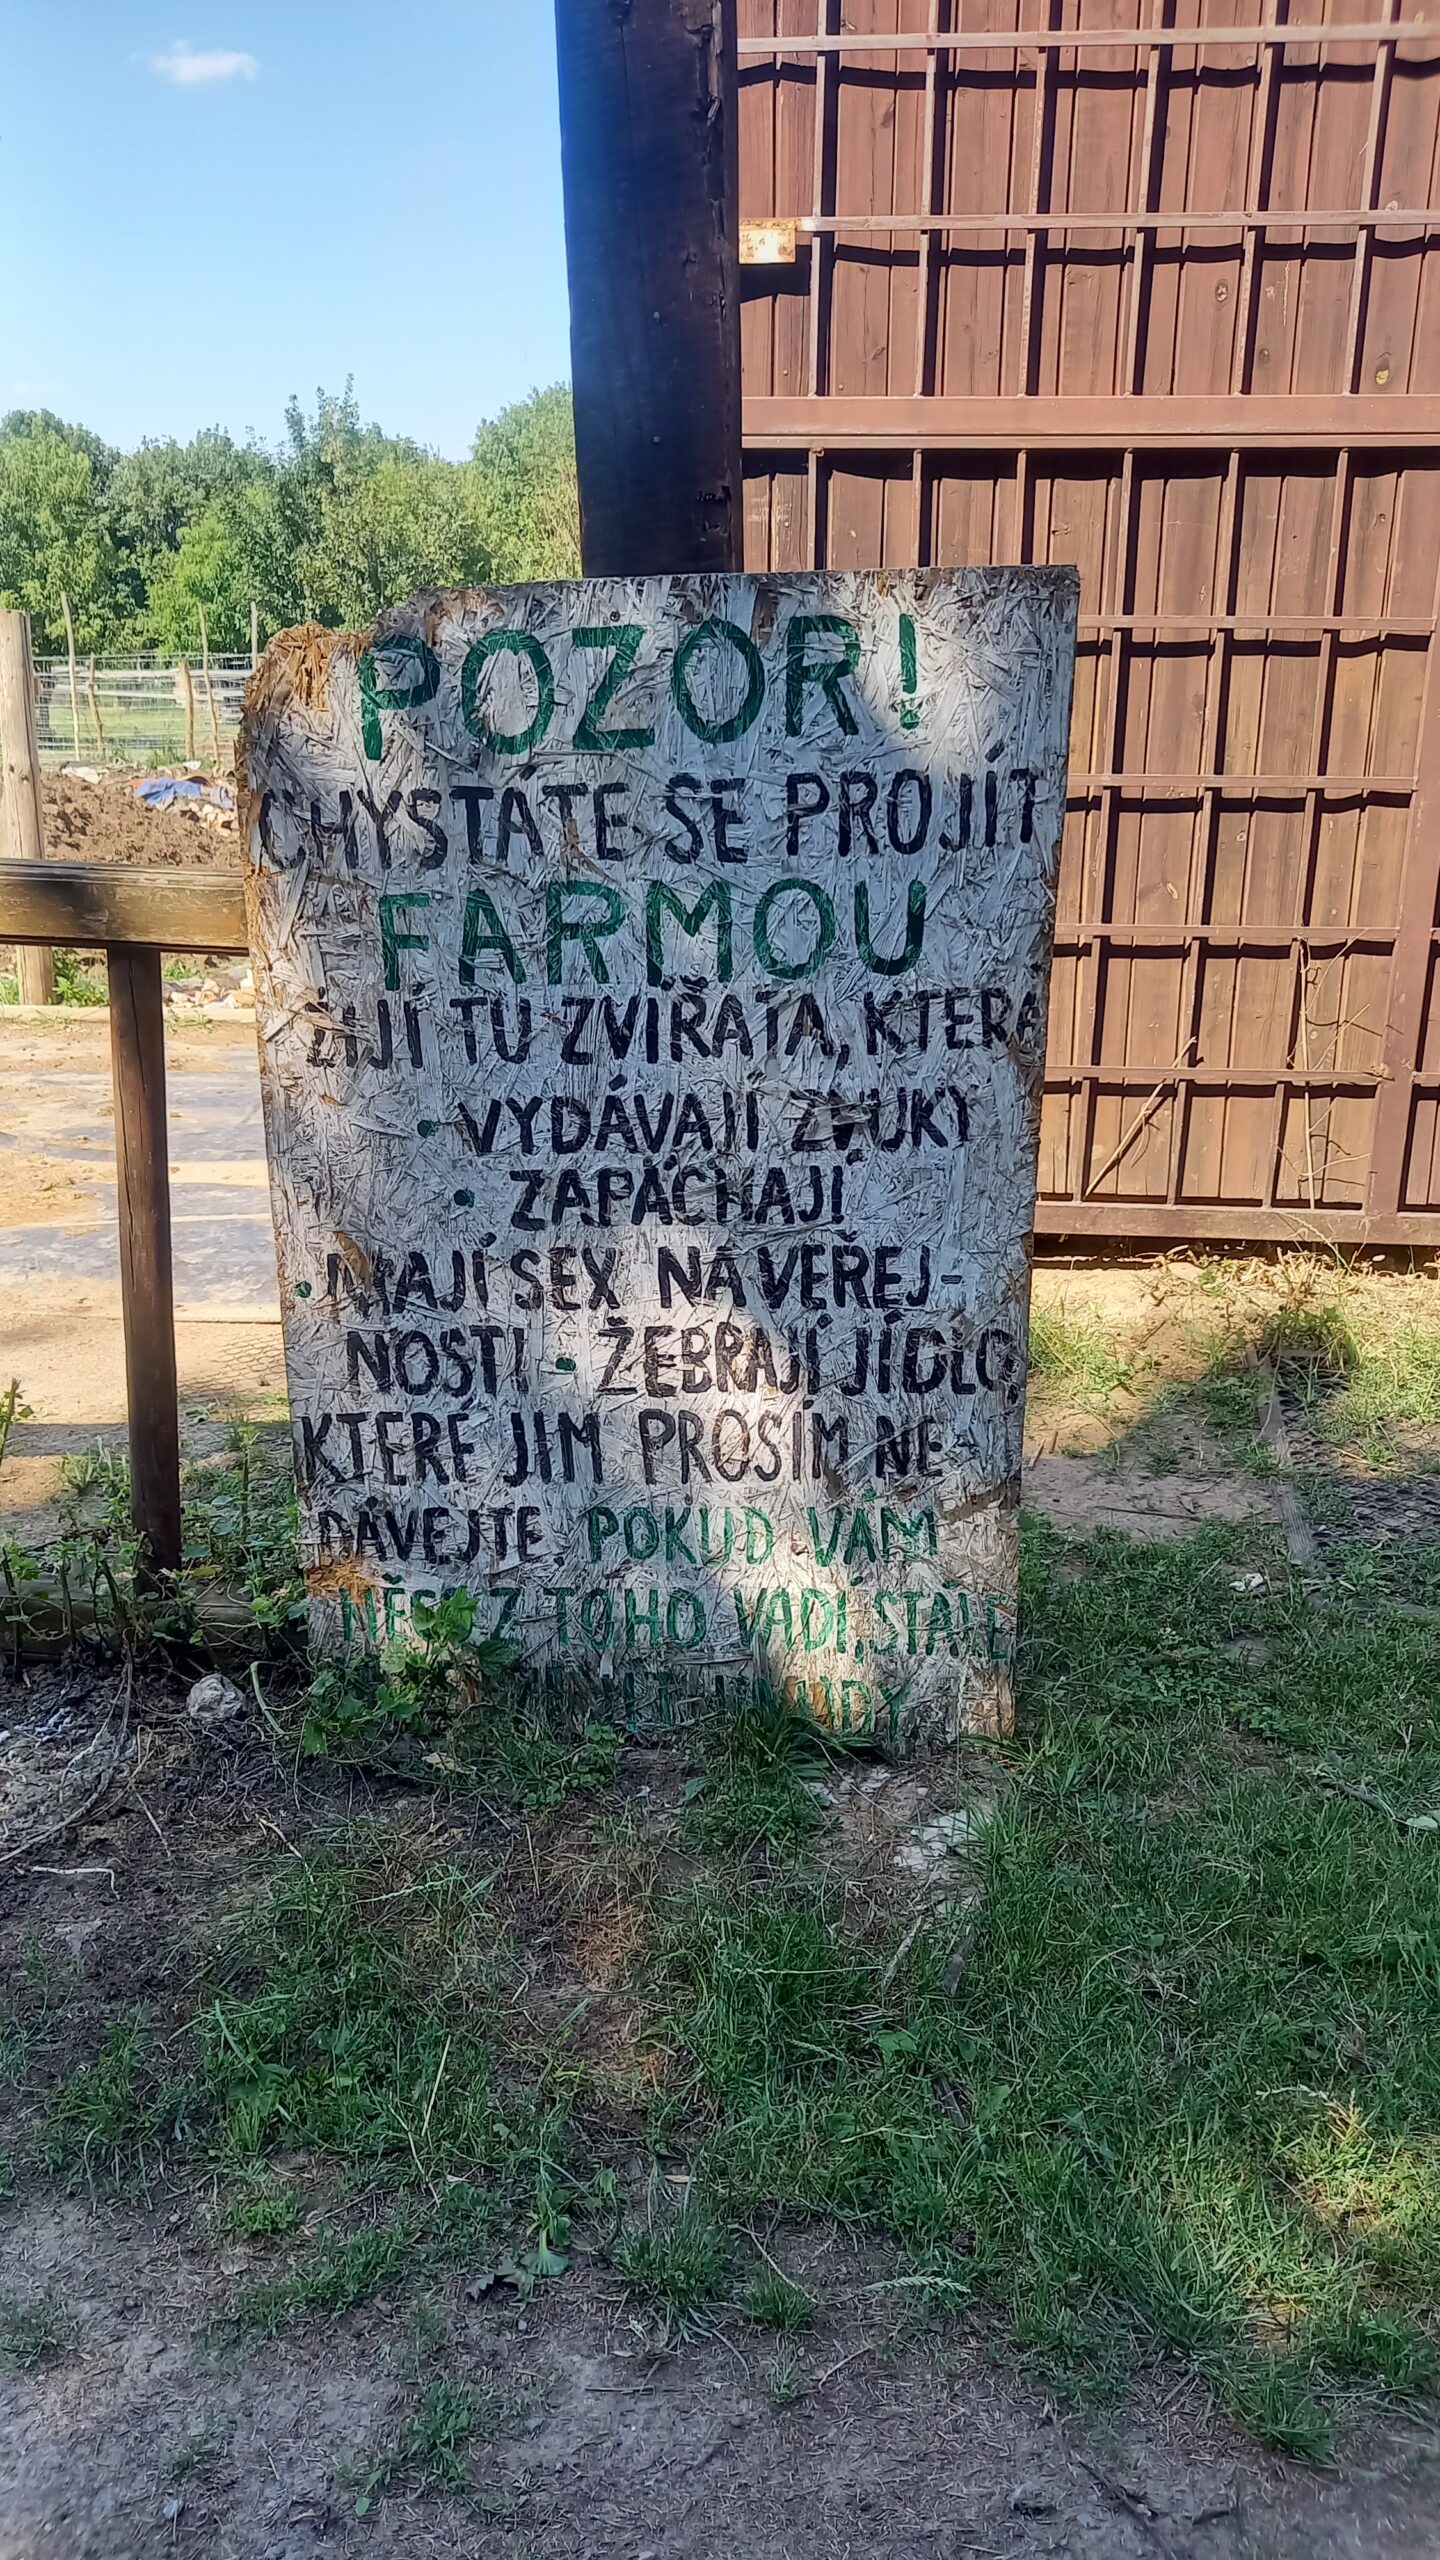 POZOR!
CHYSTÁTE SE PROJÍT
FARMOU
ŽIJÍ TU ZVÍŘATA, KTERÁ
• VYDÁVAJÍ ZVUKY
• ZAPÁCHAJÍ
• MAJÍ SEX NA VEŘEJ-
NOSTI • ŽEBRAJÍ JÍDLO,
KTERÉ JIM PROSÍM NE-
DÁVEJTE. POKUD VÁM
Z TOHO VADÍ, STÁLE